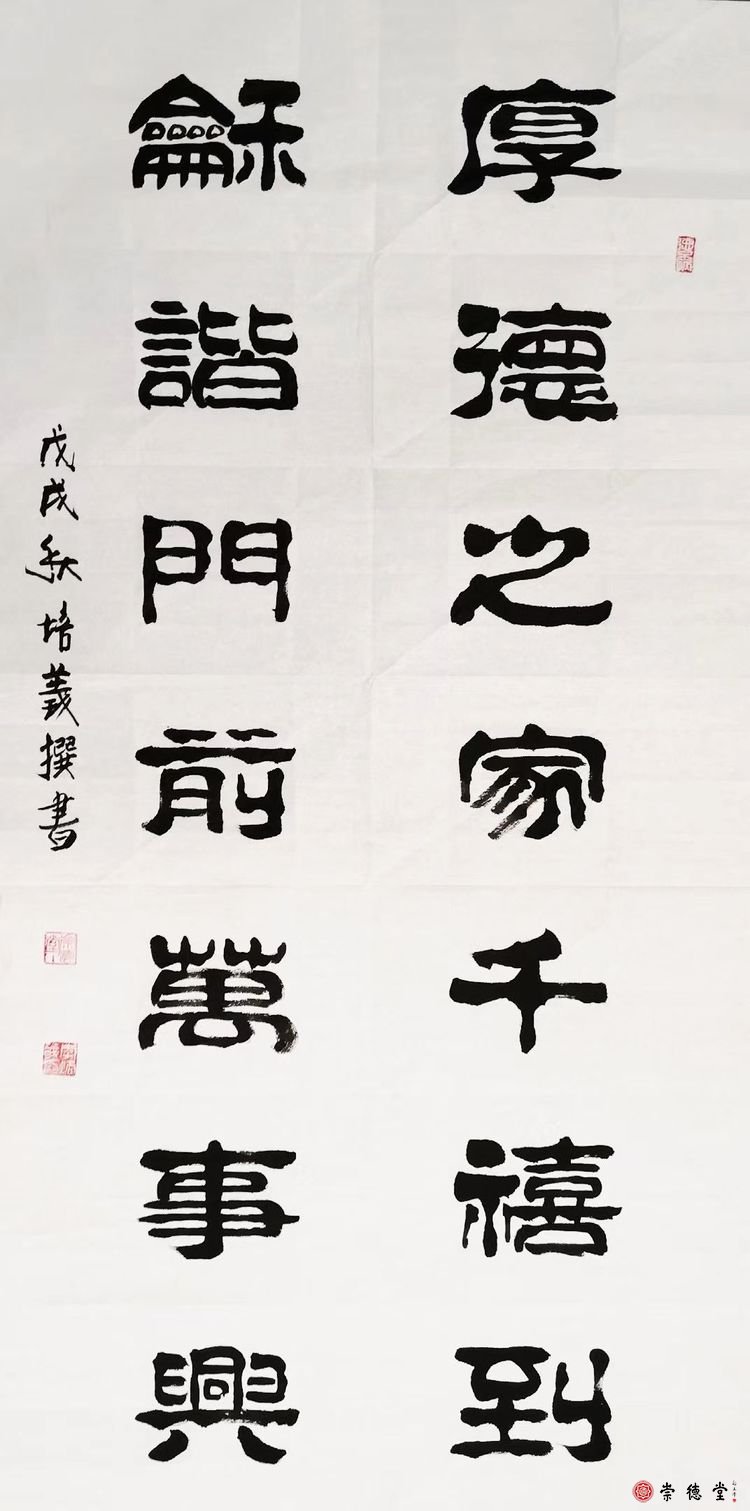 厚德之家千禧到
龢諧門前萬事興
戊戌秋培義撰書
崇德堂